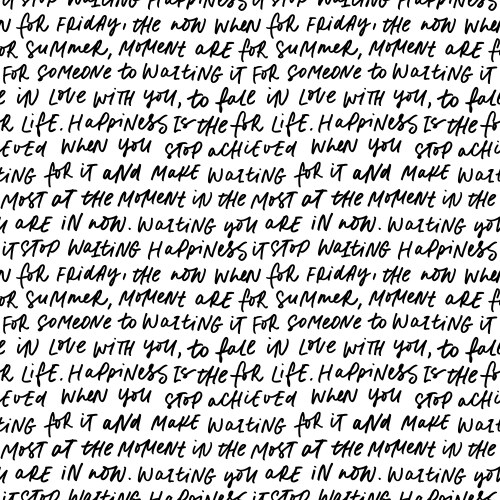 N fOR FRIDAY, tHE NOW WHEN fOR FRIDAY, tHE NOW WHEN
OR SUMMER, MOMENt ARE fOR SUMMER, MOMENt ARE f
FOR SOMEONE to WAItING it FOR SOMEONE to WAItING it
e iN LOVE WITH YOU, to fall iN LOVE WITH YOU, to fall
R LifE. HAPPINESS Is tHE fOR LifE. HAPPINESS Is tHE fO
EVEd WHEN YOU STOP ACHiEVEd WHEN YOU STOP ACHi
tiNG fOR it aNd MAKE WAItiNG fOR it aNd MAKE WAIt
MOST at tHE MOMENt iN tHE MOST at tHE MOMENt iN tHE
U ARE iN NOW. WAItiNG YOU ARE iN NOW. WAItiNG YOU
it STOP WAItiNG HAPPiNESS it STOP WAItiNG HAPPiNESS
N fOR FRIDAY, tHE NOW WHEN fOR FRIDAY, tHE NOW WHEN
OR SUMMER, MOMENt ARE fOR SUMMER, MOMENt ARE f
FOR SOMEONE to WAItING it FOR SOMEONE to WAItING it
e iN LOVE WITH YOU, to fall iN LOVE WITH YOU, to fall
R LifE. HAPPINESS Is tHE fOR LifE. HAPPINESS Is tHE fO
EVEd WHEN YOU STOP ACHiEVEd WHEN YOU STOP ACHi
tiNG fOR it aNd MAKE WAItiNG fOR it aNd MAKE WAIt
MOST at tHE MOMENt iN tHE MOST at tHE MOMENt iN tHE
U ARE iN NOW. WAItiNG YOU ARE iN NOW. WAItiNG YOU